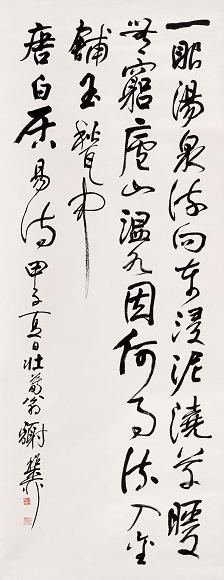 一眼湯泉流向東浸泥澆草暖
無窮廬山溫水因何事流入金
鋪玉甃中
唐白居易詩 甲子夏日壯暮翁謝稚柳